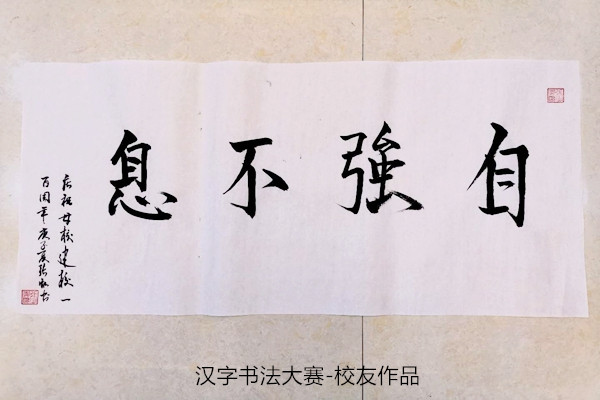 自強不息
庆祝母校建校一
百周年庚子夏张
汉字书法大赛-校友作品